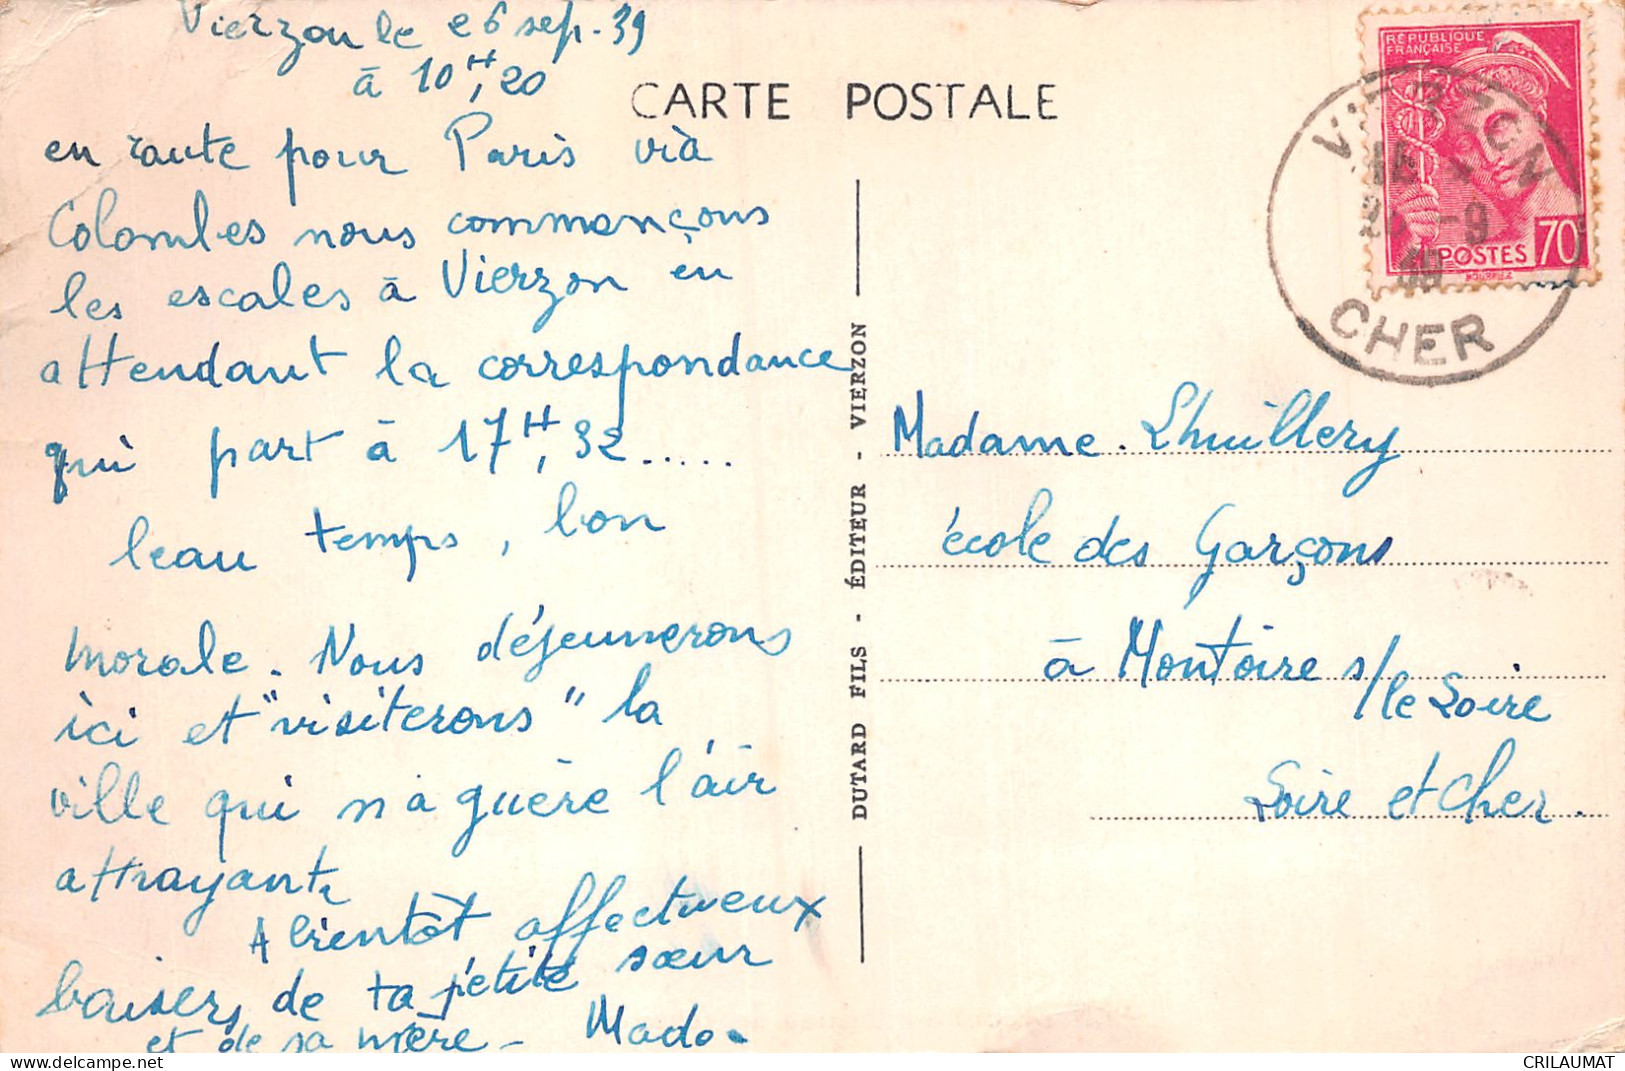 Vierzon le 26 sep. 39
à 10H,20
en route pour Paris vià
Colombes nous commençons
les escales à Vierzon en
attendant la correspondance
qui part à 17H,32.....
beau temps, bon
morale. Nous déjeunerons
ici et "visiterons" la
ville qui n'a guère l'air
attrayant
A bientôt affectueux
baisers de ta petite sœur
et de sa mère - Mado.
CARTE POSTALE
DUTARD FILS - ÉDITEUR - VIERZON
RÉPUBLIQUE
FRANÇAISE
POSTES 70c
VIERZON
CHER
Madame Lhuillery
école des Garçons
à Montoire s/le Loire
Loire et Cher.
CRILAUMAT